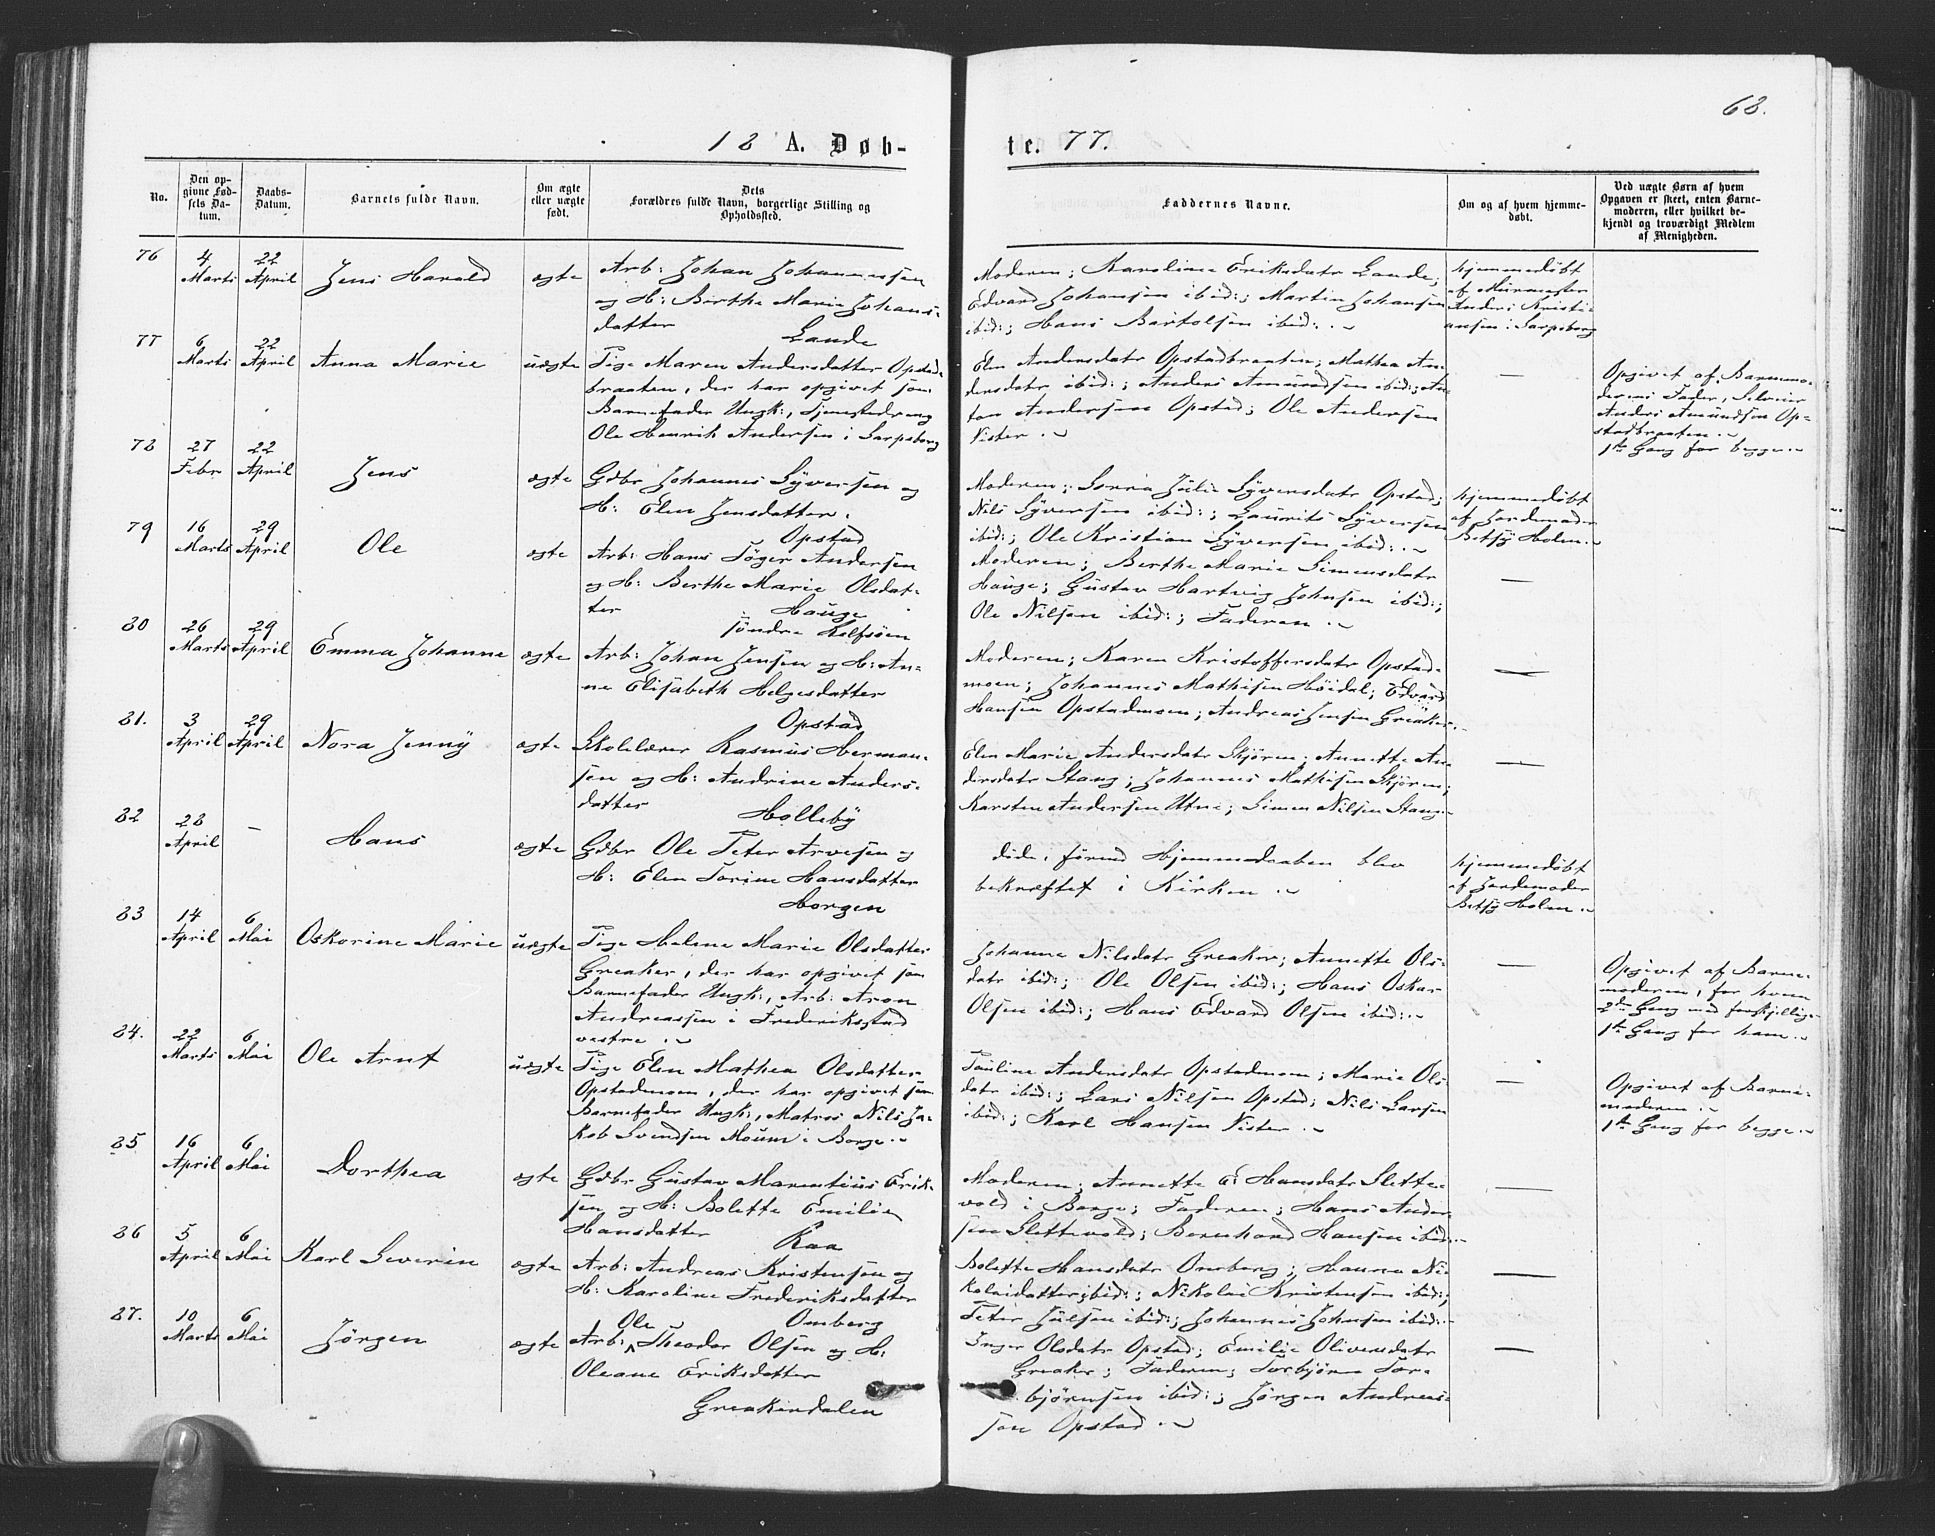 68.
18 A. Døb-
te. 77.
No.
Den op-
givne Fød-
sels Da-
tum.
Daabs-
Datum.
Barnets fulde Navn.
Om ægte
eller uægte
født.
Dets
Forældres fulde Navn, borgerlige Stilling og
Opholdssted.
Faddernes Navne.
Om og af hvem hjemme-
døbt.
Ved uægte Børn af hvem
Opgaven er skeet, enten Barne-
moderen, eller hvilket be-
kjendt og troværdigt Medlem
af Menigheden.
76
4
Marts
22
April
Jens Harald
ægte
Arb: Johan Johannessen
og H: Birthe Marie Johans-
datter
Lande
Moderen; Karoline Eriksdatr Lande;
Edvard Johansen ibid:; Martin Johansen
ibid:; Hans Bartolsen ibid:.
hjemmedøbt
af Murmester
Anders Kristi-
ansen i Sarpsborg
77
6
Marts
22
April
Anna Marie
uægte
Pige Maren Andersdatter Opstad-
braaten, der har opgivet som
Barnefader Ungk:, Tjenestedreng
Ole Henrik Andersen i Sarpsborg
Elen Andersdatr Opstadbraaten; Mathea An-
dersdatr ibid:; Anders Amundsen ibid:; An-
ton Andersen Opstad; Ole Andersen
Nister.
—
Opgivet af Barnemo-
derens Fader, Selveier
Anders Amundsen Op-
stadbraaten.
1ste Gang for begge.
78
27
Febr
22
April
Jens
ægte
Gdbr Johannes Syversen og
H: Elen Jensdatter.
Opstad
Moderen; Serine Julie Syversdatr Opstad;
Nils Syversen ibid:; Laurits Syversen
ibid:; Ole Kristian Syversen ibid:.
hjemmedøbt
af Jordemoder
Betsy Holen.
79
16
Marts
29
April
Ole
ægte
Arb: Hans Töger Andersen
og H: Berthe Marie Olsdat-
ter
Hauge
søndre Rolfsøen
Moderen; Berthe Marie Simensdatr
Hauge; Gustav Hartvig Johnsen ibid:;
Ole Nilsen ibid:; Faderen.
—
80
26
Marts
29
April
Emma Johanne
ægte
Arb: Johan Jensen og H: An-
ne Elisabeth Helgesdatter
Opstad
Moderen; Karen Kristoffersdatr Opstad-
moen; Johannes Mathisen Höidal; Edvard
Hansen Opstadmoen; Andreas Jensen Greaker.
—
81.
3
April
29
April
Nora Jenny
ægte
Skolelærer Rasmus Herman-
sen og H: Andrine Anders-
datter
Holleby
Elen Marie Andersdatr Skjören; Annette An-
dersdatr Stang; Johannes Mathisen Skjören;
Karsten Andersen Utne; Simen Nilsen Stang.
—
82
28
April
—
Hans
ægte
Gdbr Ole Peter Arvesen og
H: Elen Torine Hansdatter
Horgen
døde, førend Hjemmedaaben blev
bekræftet i Kirken.
hjemmedøbt
af Jordemoder
Betsy Holen.
83
14
April
6
Mai
Oskorine Marie
uægte
Pige Helene Marie Olsdatter
Greaker, der har opgivet som
Barnefader Ungk:, Arb: Aron
Andreassen i Frederiksstad
vestre.
Johanne Nilsdatr Greaker; Annette Ols-
datr ibid:; Ole Olsen ibid:; Hans Oskar
Olsen ibid:; Hans Edvard Olsen ibid:.
—
Opgivet af Barne-
moderen, for hvem
2den Gang med forskjellige
1ste Gang for ham.
84.
22
Marts
6
Mai
Ole Arnt
uægte
Pige Elen Mathea Olsdatter
Opstadmoen, der har opgivet som
Barnefader Ungk:, Matros Nils Ja-
kob Svendsen Moum i Borge.
Pauline Andersdatr Opstadmoen; Marie Ols-
datr ibid:; Lars Nilsen Opstad; Nils Larsen
ibid:; Karl Hansen Nister.
—
Opgivet af Barne-
moderen.
1ste Gang for begge.
85
16
April
6
Mai
Dorthea
ægte
Gdbr Gustav Marentius Erik-
sen og H: Bolette Emilie
Hansdatter
Raa
Moderen; Annette E. Hansdatr Slette-
vold i Borge; Faderen; Hans Ander-
sen Slettevold; Bernhard Hansen ibid:.
—
86
5
April
6
Mai
Karl Severin
ægte
Arb: Andreas Kristensen og
H: Karoline Frederiksdatter
Omberg
Bolette Hansdatr Omberg; Hanna Ni-
kolaidatter ibid:; Nikolai Kristensen ibid:;
Peter Julsen ibid:; Johannes Johnsen ibid:.
—
87.
10
Marts
6
Mai
Jørgen
ægte
Ole
Arb: Theodor Olsen og H:
Oleane Eriksdatter
Greakerdalen
Inger Olsdatr Opstad; Emilie Oliversdatr
Greaker; Faderen; Torbjörn Tor-
björnsen ibid:; Jörgen Andreas-
sen Opstad.
—